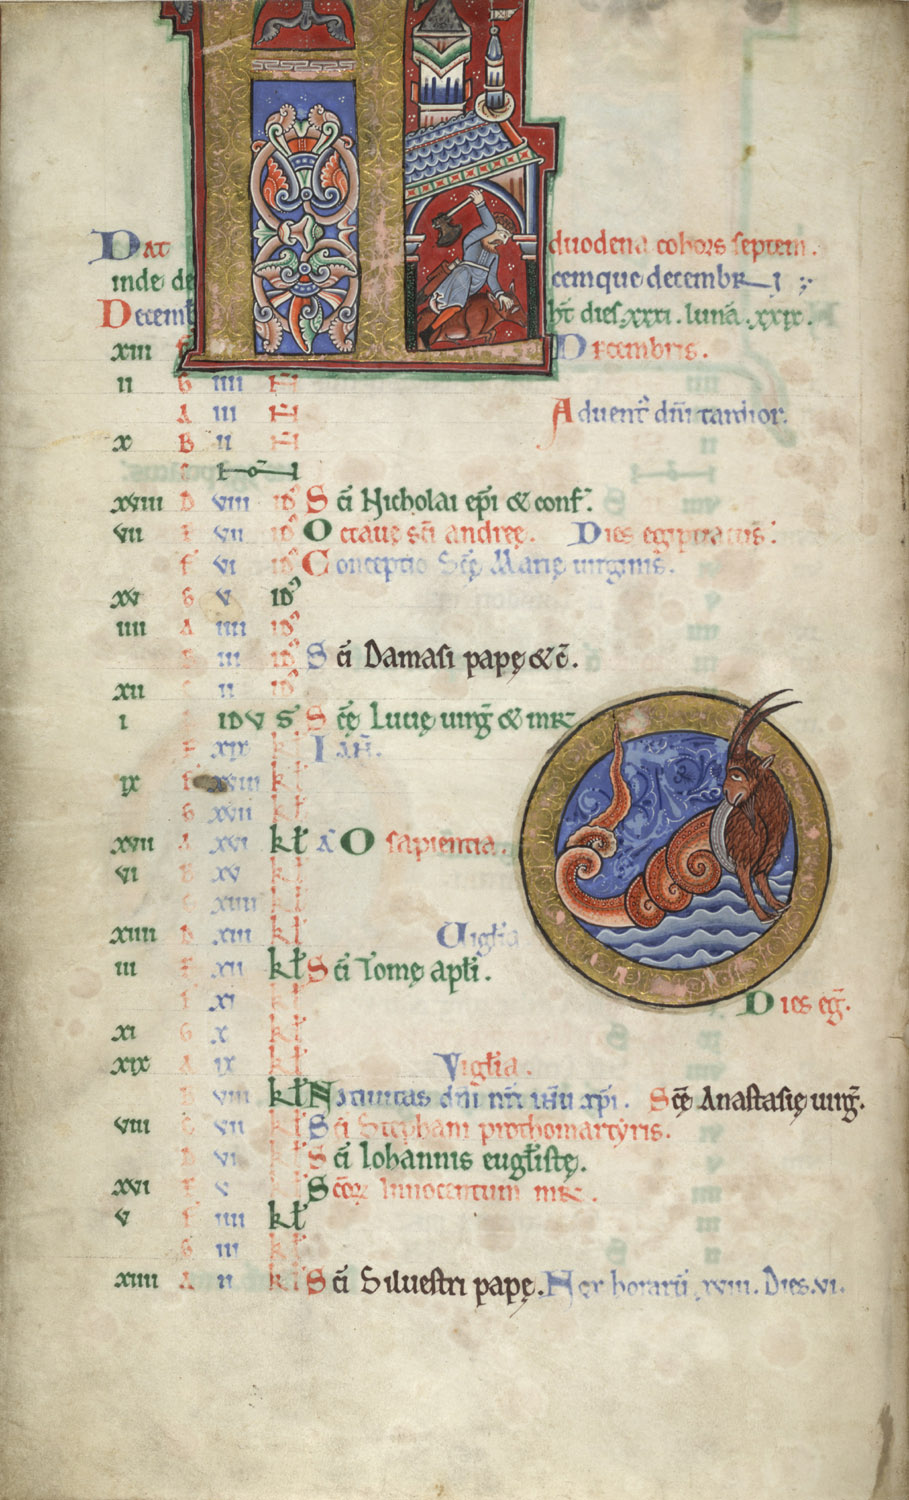 Dat duodena cohors septem.
inde de cemque decembr
Decemb ht dies .xxxi. luna .xxx.
xiii f Decembris.
ii G iiii N
A iii N Aduent' dñi tardior.
x B ii N
xviii D viii id' Sc̄i Nicholai ep̄i & conf.
vii E vii id' Octaue sc̄i andreę. Dies egiptiacus.
f vi id' Conceptio Scę Marię uirginis.
xv G v id'
iiii A iiii id'
B iii id' Sc̄i Damasi papę & c̄.
xii ii id'
i idus Sc̄ę Lucię uirg̃ & mr̄
xix kł Ian̄.
ix f xviii kł
G xvii kł
xvii A xvi kł A O sapientia.
vi xv kł
xiiii kł
xiiii xiii kł Vigł'ia
iii xii kł Sc̄i Tomę apł'i.
f xi Dies eg̃.
xi G x kł
xix A ix kł Vigł'ia.
B viii kł Natiuitas dñi nr̄i ihū xp̄i. Sc̄ę Anastasię uirg̃.
viii C vii kł Sc̄i Stephani prothomartyris.
vi kł Sc̄i Iohannis eugł'istę.
xvi v kł Sc̄orꝝ Innocentum mr̄.
v f iiii kł
G iii kł
xiiii A ii kł Sc̄i Siluestri papę. Nox horarū xviii. Dies.vi.